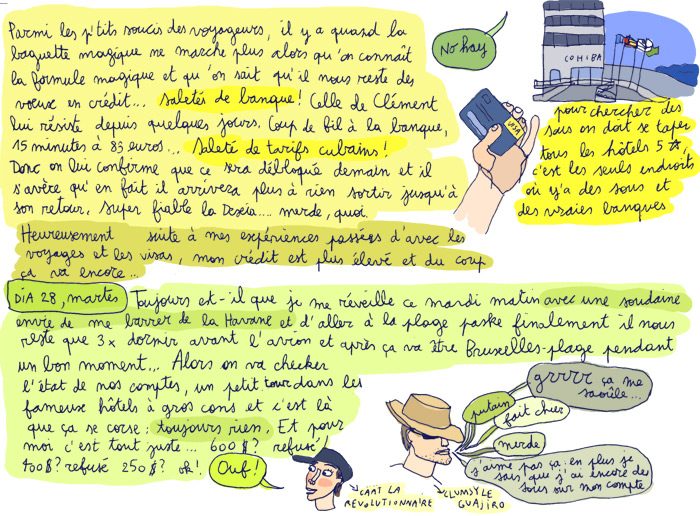 Parmi les p'tits soucis des voyageurs, il y a quand la
baguette magique ne marche plus alors qu'on connaît
la formule magique et qu'on sait qu'il nous reste des
voeux en crédit... saletés de banque! Celle de Clément
lui résiste depuis quelques jours. Coup de fil à la banque,
15 minutes à 83 euros... Saleté de tarifs cubains!
Donc on lui confirme que ce sera débloqué demain et il
s'avère qu'en fait il arrivera plus à rien sortir jusqu'à
son retour. Super fiable la Dexia.... merde, quoi.
Heureusement suite à mes expériences passées d'avec les
voyages et les visas, mon crédit est plus élevé et du coup
ça va encore...
No hay
COHIBA
VISA
pour chercher des
sous on doit se taper
tous les hôtels 5 ☆,
c'est les seuls endroits
où y'a des sous et
des vraies banques
DIA 28, martes
Toujours est-il que je me réveille ce mardi matin avec une soudaine
envie de me barrer de la Havane et d'aller à la plage paske finalement il nous
reste que 3x dormir avant l'avion et après ça va être Bruxelles-plage pendant
un bon moment... Alors on va checker
l'état de nos comptes, un petit tour dans les
fameux hôtels à gros cons et c'est là
que ça se corse: toujours rien. Et pour
moi c'est tout juste... 600$? refusé!
400$? refusé 250$? ok!
Ouf!
CAÄT LA
REVOLUTIONNAIRE
CLUMSY LE
GUAJIRO
putain
fait chier
grrrr ça me
saoûle...
merde
j'aime pas ça en plus je
sais que j'ai encore des
sous sur mon compte